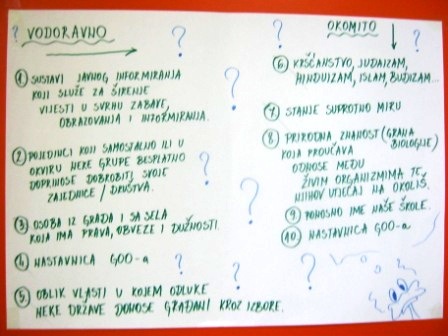 VODORAVNO
① SUSTAVI JAVNOG INFORMIRANJA
KOJI SLUŽE ZA ŠIRENJE
VIJESTI U SVRHU ZABAVE,
OBRAZOVANJA I INFORMIRANJA.
② POJEDINCI KOJI SAMOSTALNO ILI U
OKVIRU NEKE GRUPE BESPLATNO
DOPRINOSE DOBROBITI SVOJE
ZAJEDNICE / DRUŠTVA.
③ OSOBA IZ GRADA I SA SELA
KOJA IMA PRAVA, OBVEZE I DUŽNOSTI.
④ NASTAVNICA GOO-a
⑤ OBLIK VLASTI U KOJEM ODLUKE
NEKE DRŽAVE DONOSE GRAĐANI KROZ IZBORE.
OKOMITO
⑥ KRŠĆANSTVO, JUDAIZAM,
HINDUIZAM, ISLAM, BUDIZAM...
⑦ STANJE SUPROTNO MIRU
⑧ PRIRODNA ZNANOST (GRANA
BIOLOGIJE)
KOJA PROUČAVA
ODNOSE MEĐU
ŽIVIM ORGANIZMIMA TE
NJIHOV UTJECAJ NA OKOLIŠ.
⑨ PONOSNO IME NAŠE ŠKOLE.
⑩ NASTAVNICI GOO-a